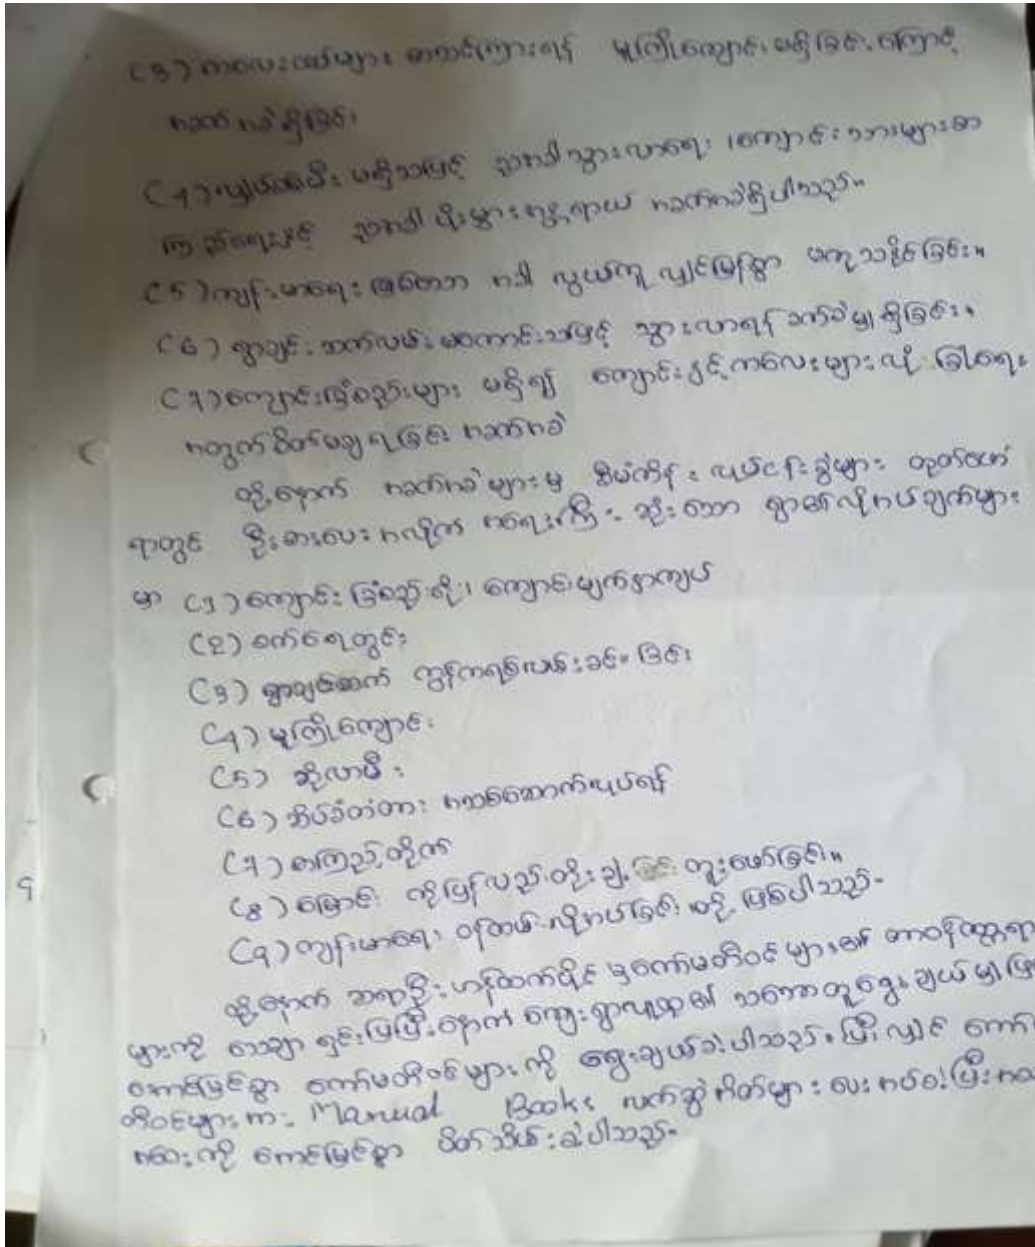 (၃) ကလေးငယ်များ စာသင်ကြားရန် မူကြိုကျောင်း မရှိခြင်းကြောင့်
အခက်အခဲရှိခြင်း
(၄) လျှပ်စစ်မီး မရှိသဖြင့် ညအခါ သွားလာရေး၊ ကျောင်းသားများစာ
ကြည့်ရေးနှင့် ညအခါ မီးဖွားအန္တရာယ် အခက်အခဲရှိပါသည်။
(၅) ကျန်းမာရေး ဖြစ်သော အခါ လွယ်ကူ လျှင်မြန်စွာ မကုသနိုင်ခြင်း။
(၆) ရွာချင်းဆက်လမ်း မကောင်းသဖြင့် သွားလာရန် ခက်ခဲမှုရှိခြင်း။
(၇) ကျောင်းခြံစည်းများ မရှိ၍ ကျောင်းနှင့်ကလေးများ လုံခြုံရေး
အတွက် စိတ်မချရခြင်း အခက်အခဲ
ထို့နောက် အခက်အခဲများမှ စီမံကိန်း လုပ်ငန်းခွဲများ ထုတ်ဖော်
ရာတွင် ဦးစားပေးအလိုက် အရေးကြီးဆုံးသော ရွာ၏လိုအပ်ချက်များ
မှာ (၁) ကျောင်းခြံစည်းရိုး၊ ကျောင်းမျက်နှာကျယ်
(၂) စက်ရေတွင်း
(၃) ရွာချင်းဆက် ကွန်ကရစ်လမ်းခင်းခြင်း
(၄) မူကြိုကျောင်း
(၅) ဆိုလာမီး
(၆) အိပ်ခံတံတား အသစ်ဆောက်လုပ်ရန်
(၇) စာကြည့်တိုက်
(၈) မြောင်းကိုပြန်လည်တိုးချဲ့ တူးဖော်ခြင်း။
(၉) ကျန်းမာရေး ဝန်ထမ်းလိုအပ်ခြင်း တို့ ဖြစ်ပါသည်။
ထို့နောက် ဆရာဦးဟန်ထက်ခိုင် မှကော်မတီဝင်များ၏ တာဝန်ဝတ္တရာ
များကို သေချာ ရှင်းပြပြီးနောက် ကျေးရွာလူထု၏ သဘောတူရွေးချယ်မှုဖြ
အောင်မြင်စွာ ကော်မတီဝင်များကို ရွေးချယ်ခဲ့ပါသည်။ ပြီးလျှင် ကော်
တီဝင်များအား Manual Books လက်ဆွဲအိတ်များ ပေးအပ်ခဲ့ပြီးအစ
အဝေးကို အောင်မြင်စွာ ပိတ်သိမ်းခဲ့ပါသည်။